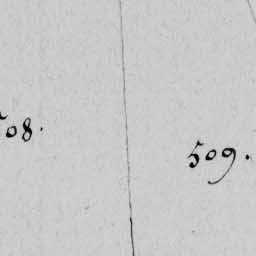 508.
509.